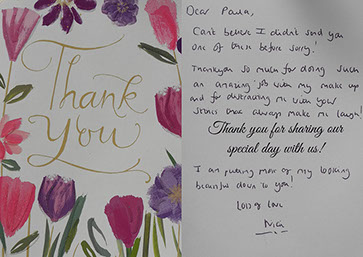 Thank
You
Dear Paula,
Can't believe I didn't send you
one of these before sorry!
Thankyou so much for doing such
an amazing job with my make up
and for distracting me with your
stories that always make me laugh!
Thank you for sharing our
special day with us!
I am putting most of my looking
beautiful down to you!
Lots of love